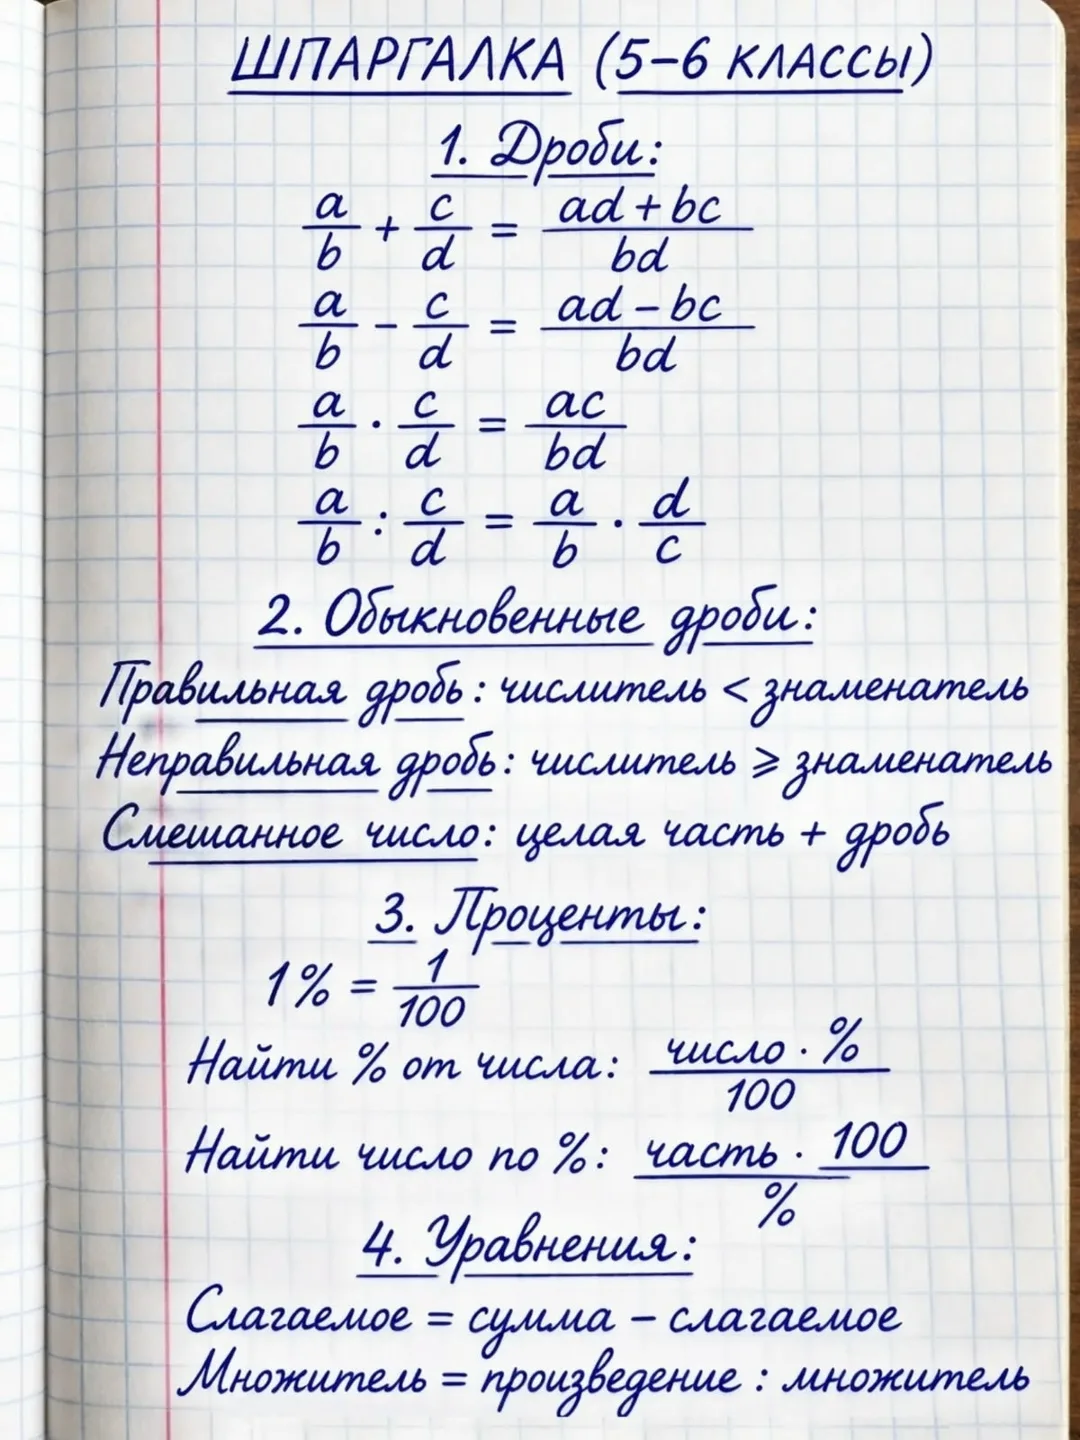 ШПАРГАЛКА (5–6 КЛАССЫ)
1. Дроби:
a/b + c/d = (ad + bc)/bd
a/b - c/d = (ad - bc)/bd
a/b · c/d = ac/bd
a/b : c/d = a/b · d/c
2. Обыкновенные дроби:
Правильная дробь: числитель < знаменатель
Неправильная дробь: числитель ⩾ знаменатель
Смешанное число: целая часть + дробь
3. Проценты:
1% = 1/100
Найти % от числа: (число · %)/100
Найти число по %: (часть · 100)/%
4. Уравнения:
Слагаемое = сумма – слагаемое
Множитель = произведение : множитель